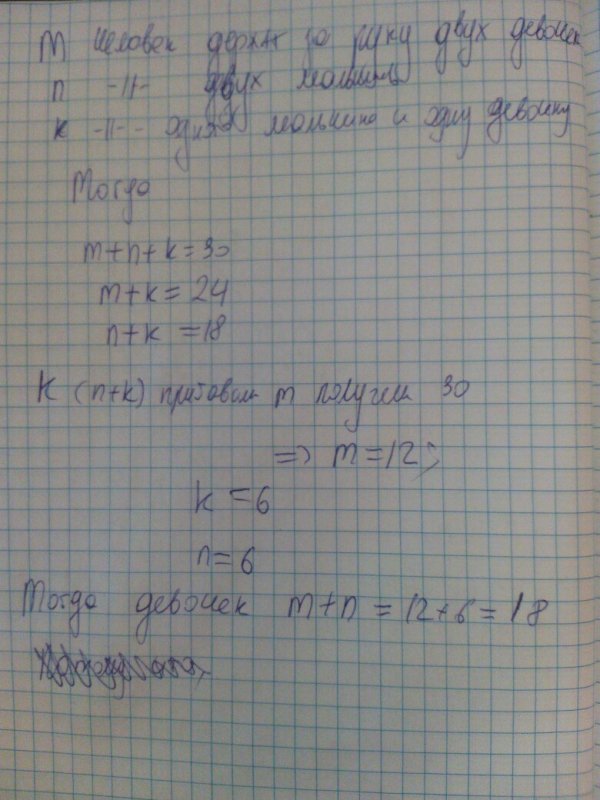 M человек держат за руку двух девочек
n -//- двух мальчиков
k -//- одного мальчика и одну девочку
Тогда
m+n+k=30
m+k=24
n+k=18
К (n+k) прибавим m получим 30
=> m=12;
k=6
n=6
Тогда девочек m+n=12+6=18